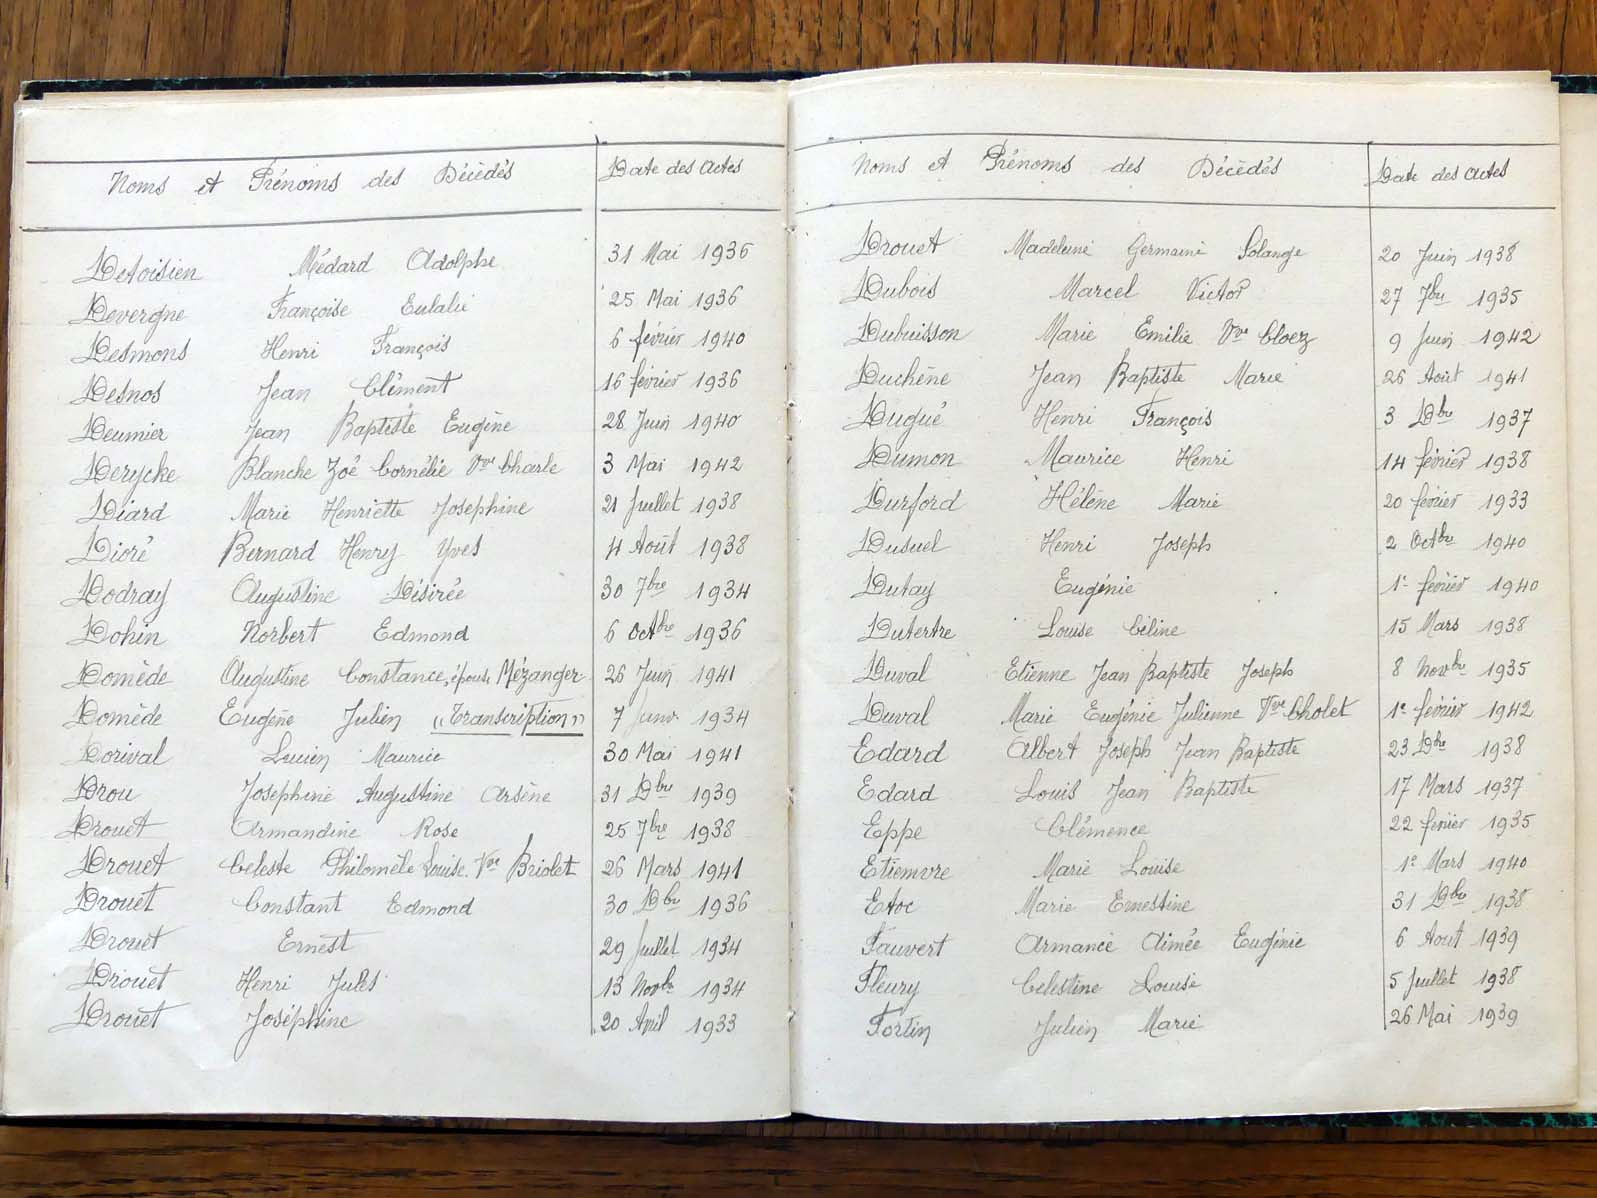 Noms et Prénoms des Décédés Date des actes
Detoisien Médard Adolphe 31 Mai 1936
Devergne Françoise Eulalie 25 Mai 1936
Desmons Henri François 6 février 1940
Desnos Jean Clément 16 février 1936
Deumier Jean Baptiste Eugène 28 Juin 1940
Derycke Blanche Zoé Cornélie Vve Charle 3 Mai 1942
Diard Marie Henriette Josephine 21 Juillet 1938
Dioré Bernard Henry Yves 4 Août 1938
Dodray Augustine Désirée 30 7bre 1934
Dohin Norbert Edmond 6 Octbre 1936
Domède Augustine Constance, épouse Mézanger 26 Juin 1941
Domède Eugène Julien "Transcription" 7 janv. 1934
Dorival Lucien Maurice 30 Mai 1941
Drou Josephine Augustine Arsène 31 Dbre 1939
Drouet Armandine Rose 25 7bre 1938
Drouet Celeste Philomèle Louise Vve Briolet 26 Mars 1941
Drouet Constant Edmond 30 Dbre 1936
Drouet Ernest 29 Juillet 1934
Drouet Henri Jules 13 Novbre 1934
Drouet Joséphine 20 Avril 1933
Noms et Prénoms des Décédés Date des actes
Drouet Madeleine Germaine Solange 20 Juin 1938
Dubois Marcel Victor 27 7bre 1935
Dubuisson Marie Emilie Vve Cloez 9 Juin 1942
Duchêne Jean Baptiste Marie 26 Août 1941
Dugué Henri François 3 Dbre 1937
Dumon Maurice Henri 14 février 1938
Durford Hélène Marie 20 février 1933
Dusuel Henri Joseph 2 Octbre 1940
Dutay Eugénie 1e février 1940
Dutertre Louise Céline 15 Mars 1938
Duval Etienne Jean Baptiste Joseph 8 Novbre 1935
Duval Marie Eugénie Julienne Vve Cholet 1e février 1942
Edard Albert Joseph Jean Baptiste 23 Dbre 1938
Edard Louis Jean Baptiste 17 Mars 1937
Eppe Clémence 22 fevrier 1935
Etiemvre Marie Louise 1e Mars 1940
Etoc Marie Ernestine 31 Dbre 1938
Fauvert Armance Aimée Eugénie 6 Août 1939
Fleury Celestine Louise 5 Juillet 1938
Fortin Julien Marie 26 Mai 1939